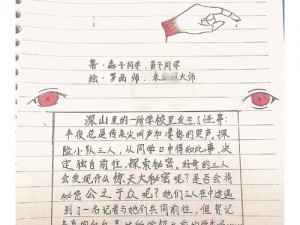 著：淼子同学、苗子同学
绘：罗画师、朱 大师
深山里的一所学校里发生了怪事：
半夜总是传来尖叫声和凄惨的哭声，探
险小队三人，从同学口中得知此事，决
定独自前往，探索秘密，好奇的三人
会发现什么惊天大秘密呢？是否会将
秘密公之于众呢？她们三人在中途遇
到了一名记者与她们共同前往，但